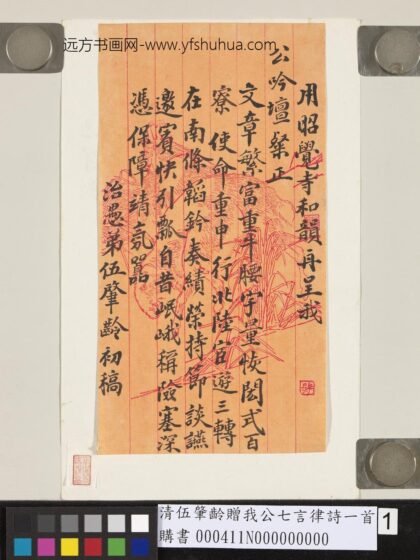 远方书画网-www.yfshuhua.com
用昭覺寺和韻再呈我
公吟壇粲正
文章繁富重牛腰宇量恢閎式百
寮使命重申行北陸宦遊三轉
在南條韜鈐奏績榮持節談讌
邀賓快引瓢自昔岷峨稱險塞深
憑保障靖氛囂
治愚弟伍肇齡初稿
清伍肇齡贈我公七言律詩一首
購書 000411N000000000
1